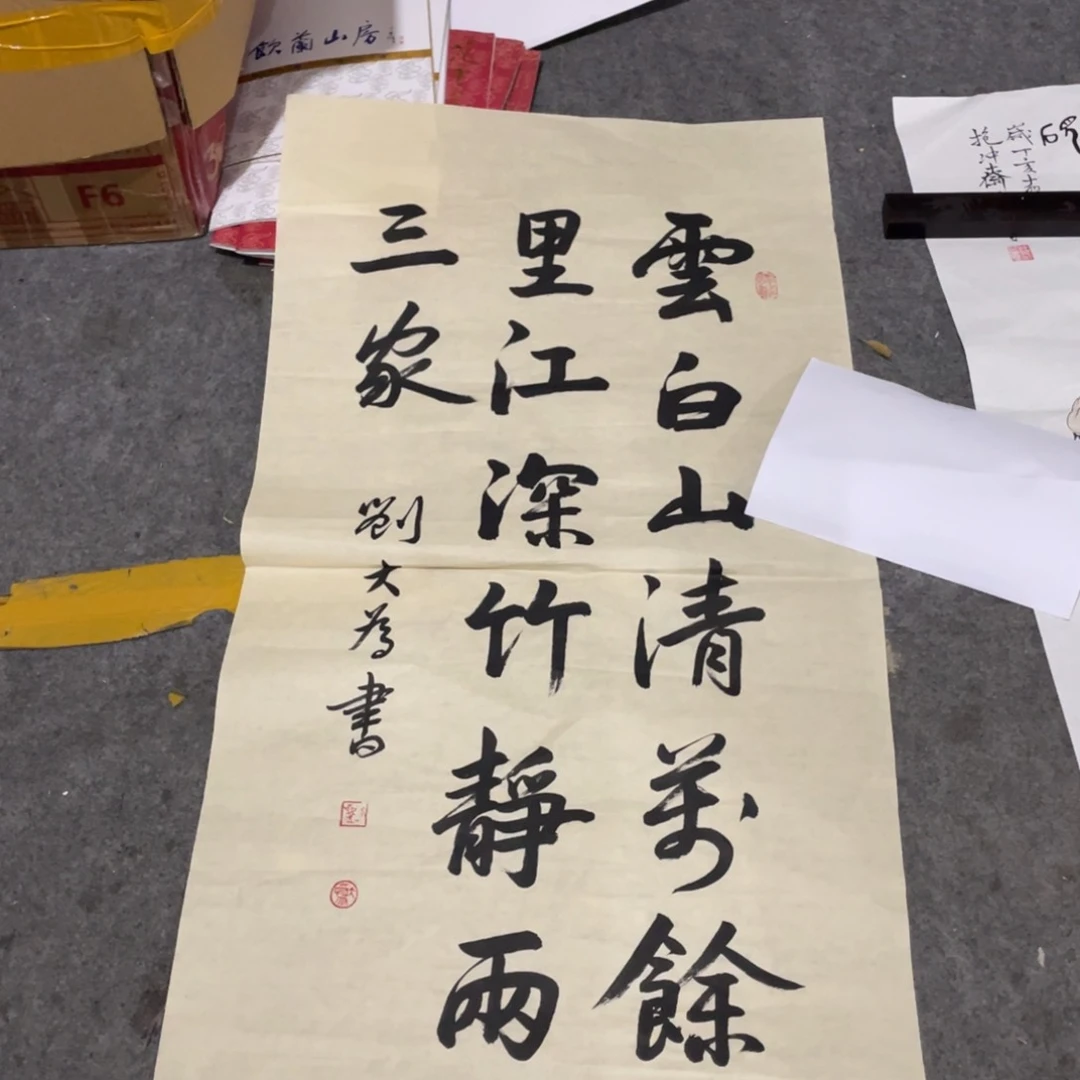 雲白山清萬餘
里江深竹靜兩
三家
劉大為書
飲蘭山房
F6
歲丁亥
抱沖齋